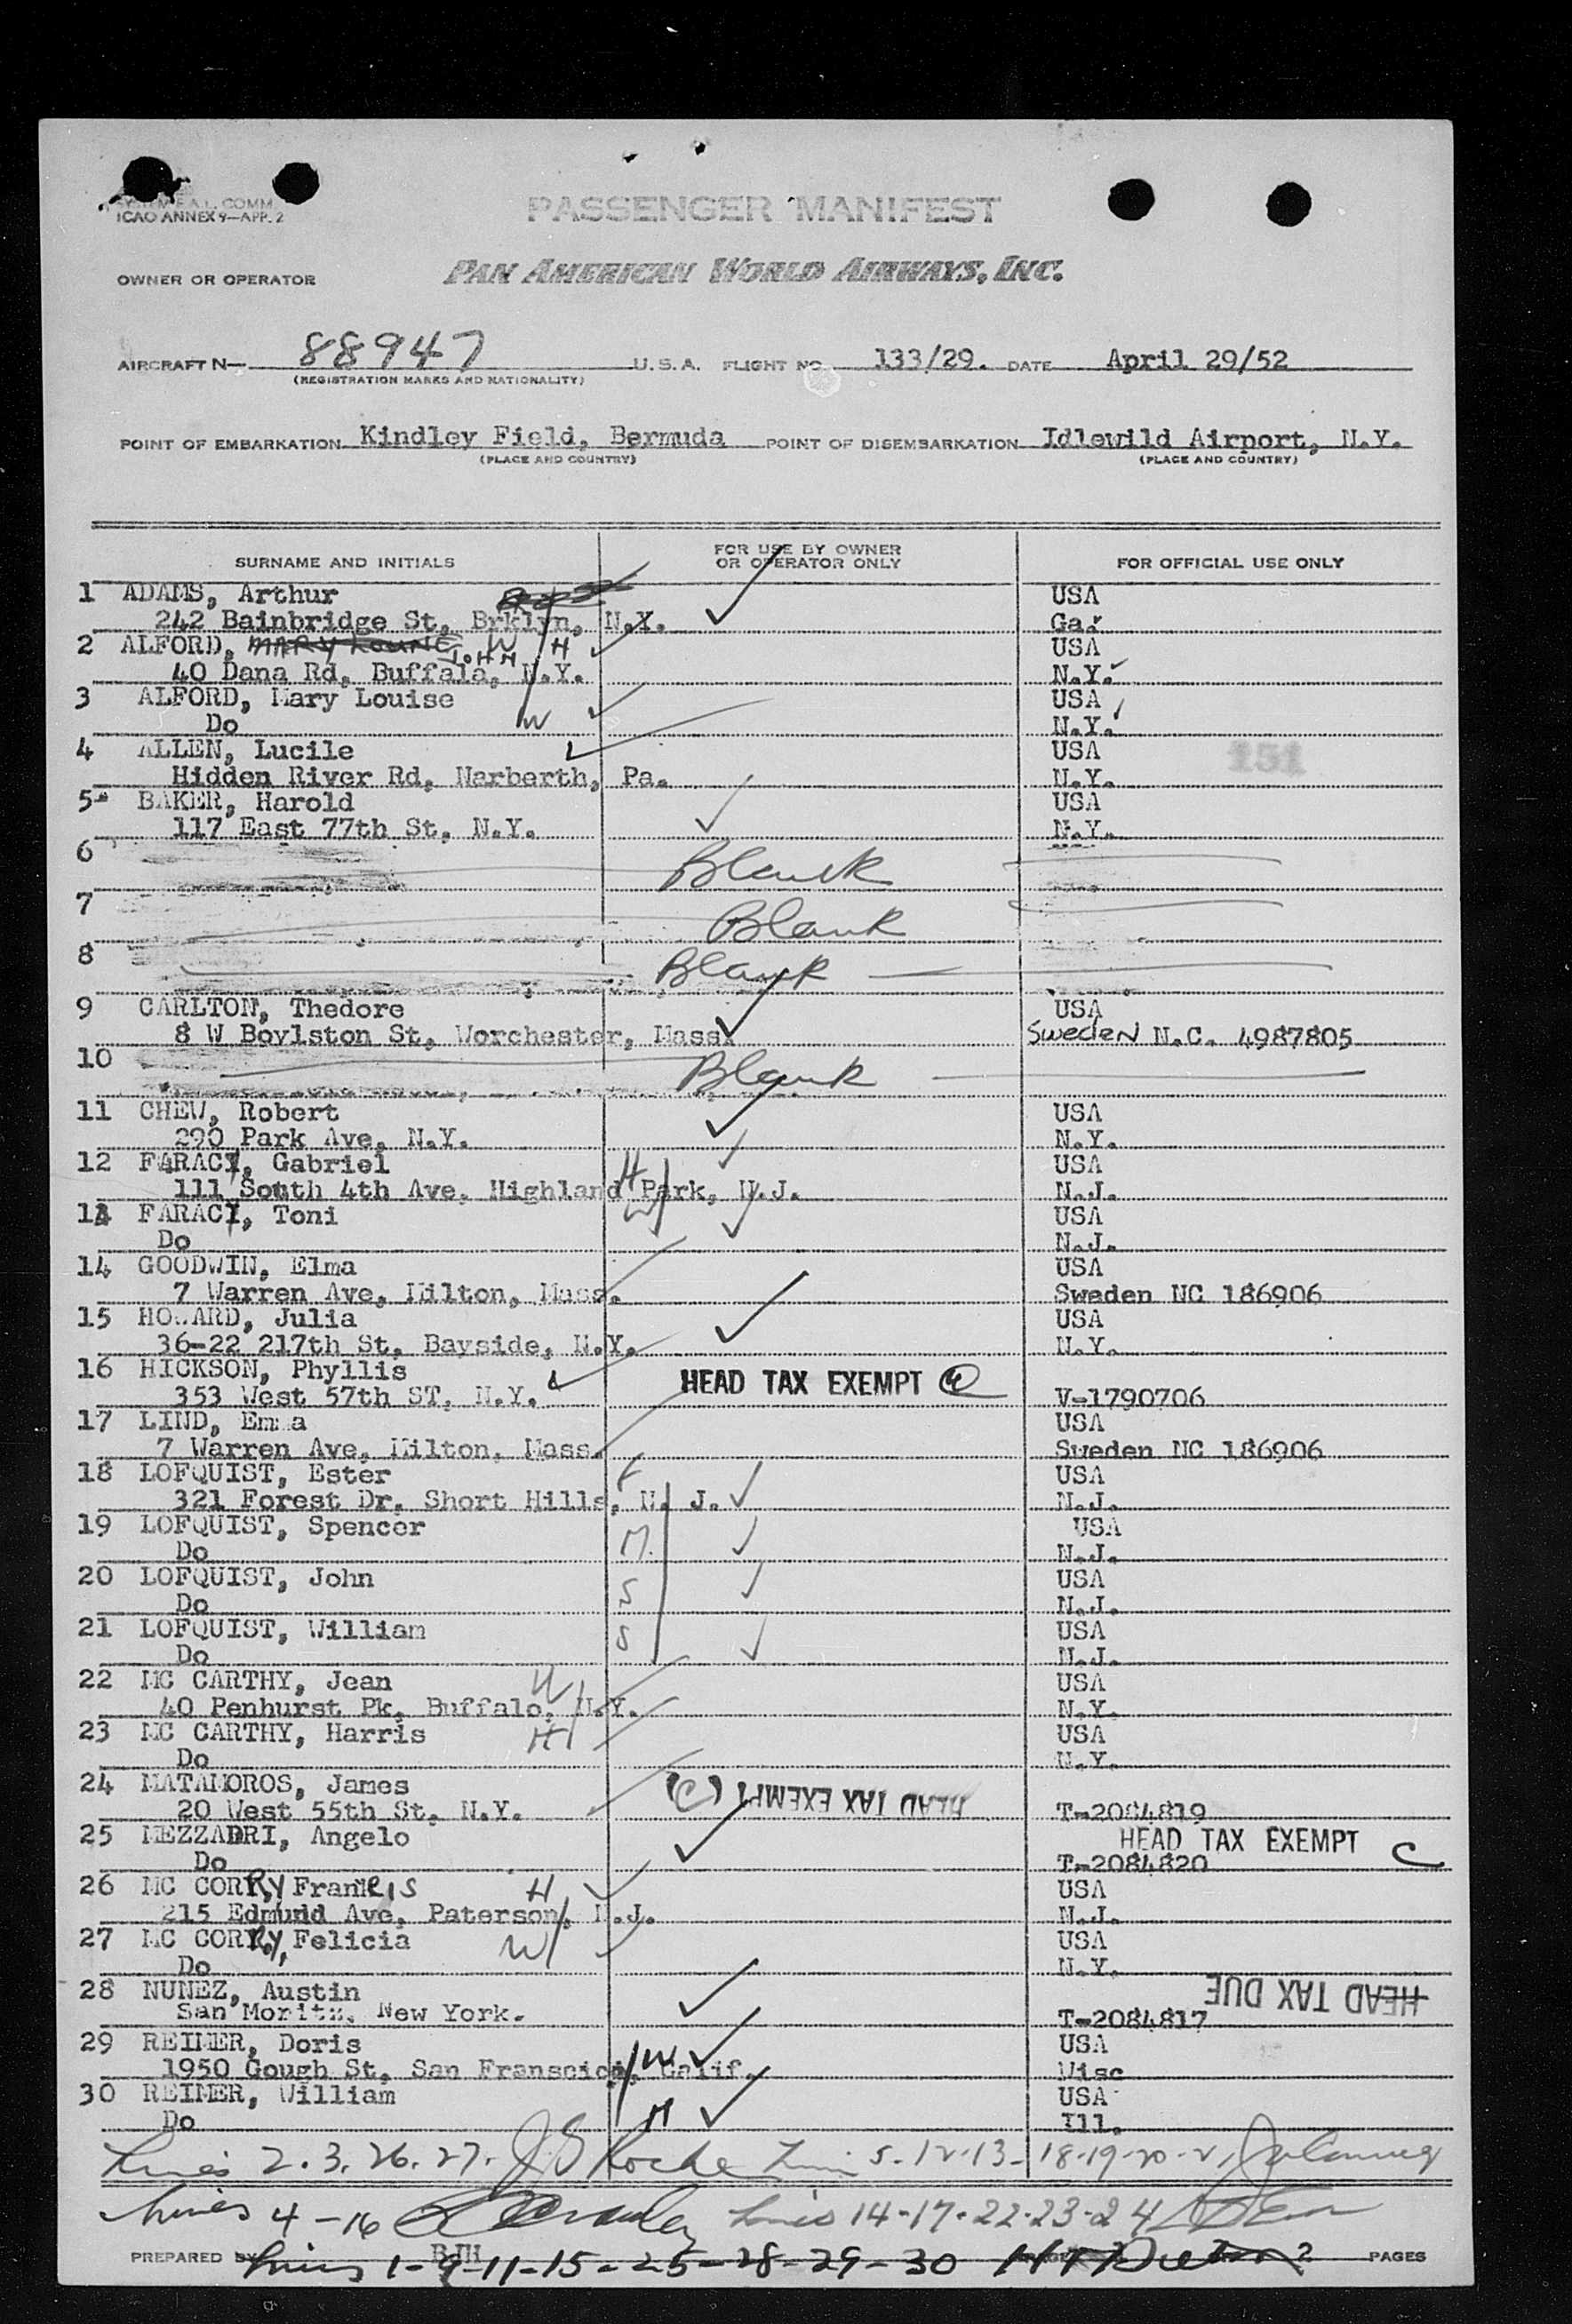 SYSTEM F.A.L. COMM.
ICAO ANNEX 9—APP. 2
PASSENGER MANIFEST
OWNER OR OPERATOR PAN AMERICAN WORLD AIRWAYS, INC.
AIRCRAFT N— 88947 U.S.A. FLIGHT NO. 133/29. DATE April 29/52
(REGISTRATION MARKS AND NATIONALITY)
POINT OF EMBARKATION Kindley Field, Bermuda POINT OF DISEMBARKATION Idlewild Airport, N.Y.
(PLACE AND COUNTRY) (PLACE AND COUNTRY)
SURNAME AND INITIALS FOR USE BY OWNER OR OPERATOR ONLY FOR OFFICIAL USE ONLY
1 ADAMS, Arthur USA
242 Bainbridge St, Brklyn, N.Y. Ga.
2 ALFORD, MARY LOUISE JOHN W H USA
40 Dana Rd, Buffala, N.Y. N.Y.
3 ALFORD, Mary Louise USA
Do W N.Y.
4 ALLEN, Lucile USA 151
Hidden River Rd, Narberth, Pa. N.Y.
5 BAKER, Harold USA
117 East 77th St, N.Y. N.Y.
6 Blank
7 Blank
8 Blank
9 CARLTON, Thedore USA
8 W Boylston St, Worchester, Mass. Sweden N.C. 4987805
10 Blank
11 CHEW, Robert USA
290 Park Ave, N.Y. N.Y.
12 FARACI, Gabriel H USA
111 South 4th Ave, Highland Park, N.J. N.J.
13 FARACI, Toni W USA
Do N.J.
14 GOODWIN, Elma USA
7 Warren Ave, Milton, Mass. Sweden NC 186906
15 HOWARD, Julia USA
36-22 217th St, Bayside, N.Y. N.Y.
16 HICKSON, Phyllis HEAD TAX EXEMPT
353 West 57th ST, N.Y. V-1790706
17 LIND, Emma USA
7 Warren Ave, Milton, Mass. Sweden NC 186906
18 LOFQUIST, Ester F USA
321 Forest Dr, Short Hills, N. J. N.J.
19 LOFQUIST, Spencer USA
Do M. N.J.
20 LOFQUIST, John USA
Do S N.J.
21 LOFQUIST, William USA
Do S N.J.
22 MC CARTHY, Jean W USA
40 Penhurst Pk, Buffalo, N.Y. N.Y.
23 MC CARTHY, Harris H USA
Do N.Y.
24 MATAMOROS, James HEAD TAX EXEMPT
20 West 55th St, N.Y. T-2084819
25 MEZZADRI, Angelo HEAD TAX EXEMPT C
Do T-2084820
26 MC CORRY, Francis H USA
215 Edmund Ave, Paterson, N.J. N.J.
27 MC CORRY, Felicia W USA
Do N.Y.
28 NUNEZ, Austin HEAD TAX DUE
San Moritz, New York. T-2084817
29 REIMER, Doris USA
1950 Gough St, San Franscico, Calif. W Wisc
30 REIMER, William USA
Do H Ill.
Lines 2.3.26.27. J.G Roche Lines 5-12-13-18-19-20-21
Lines 4-16 Lines 14-17-22-23-24
PREPARED BY BJH 2 PAGES
Lines 1-9-11-15-25-28-29-30